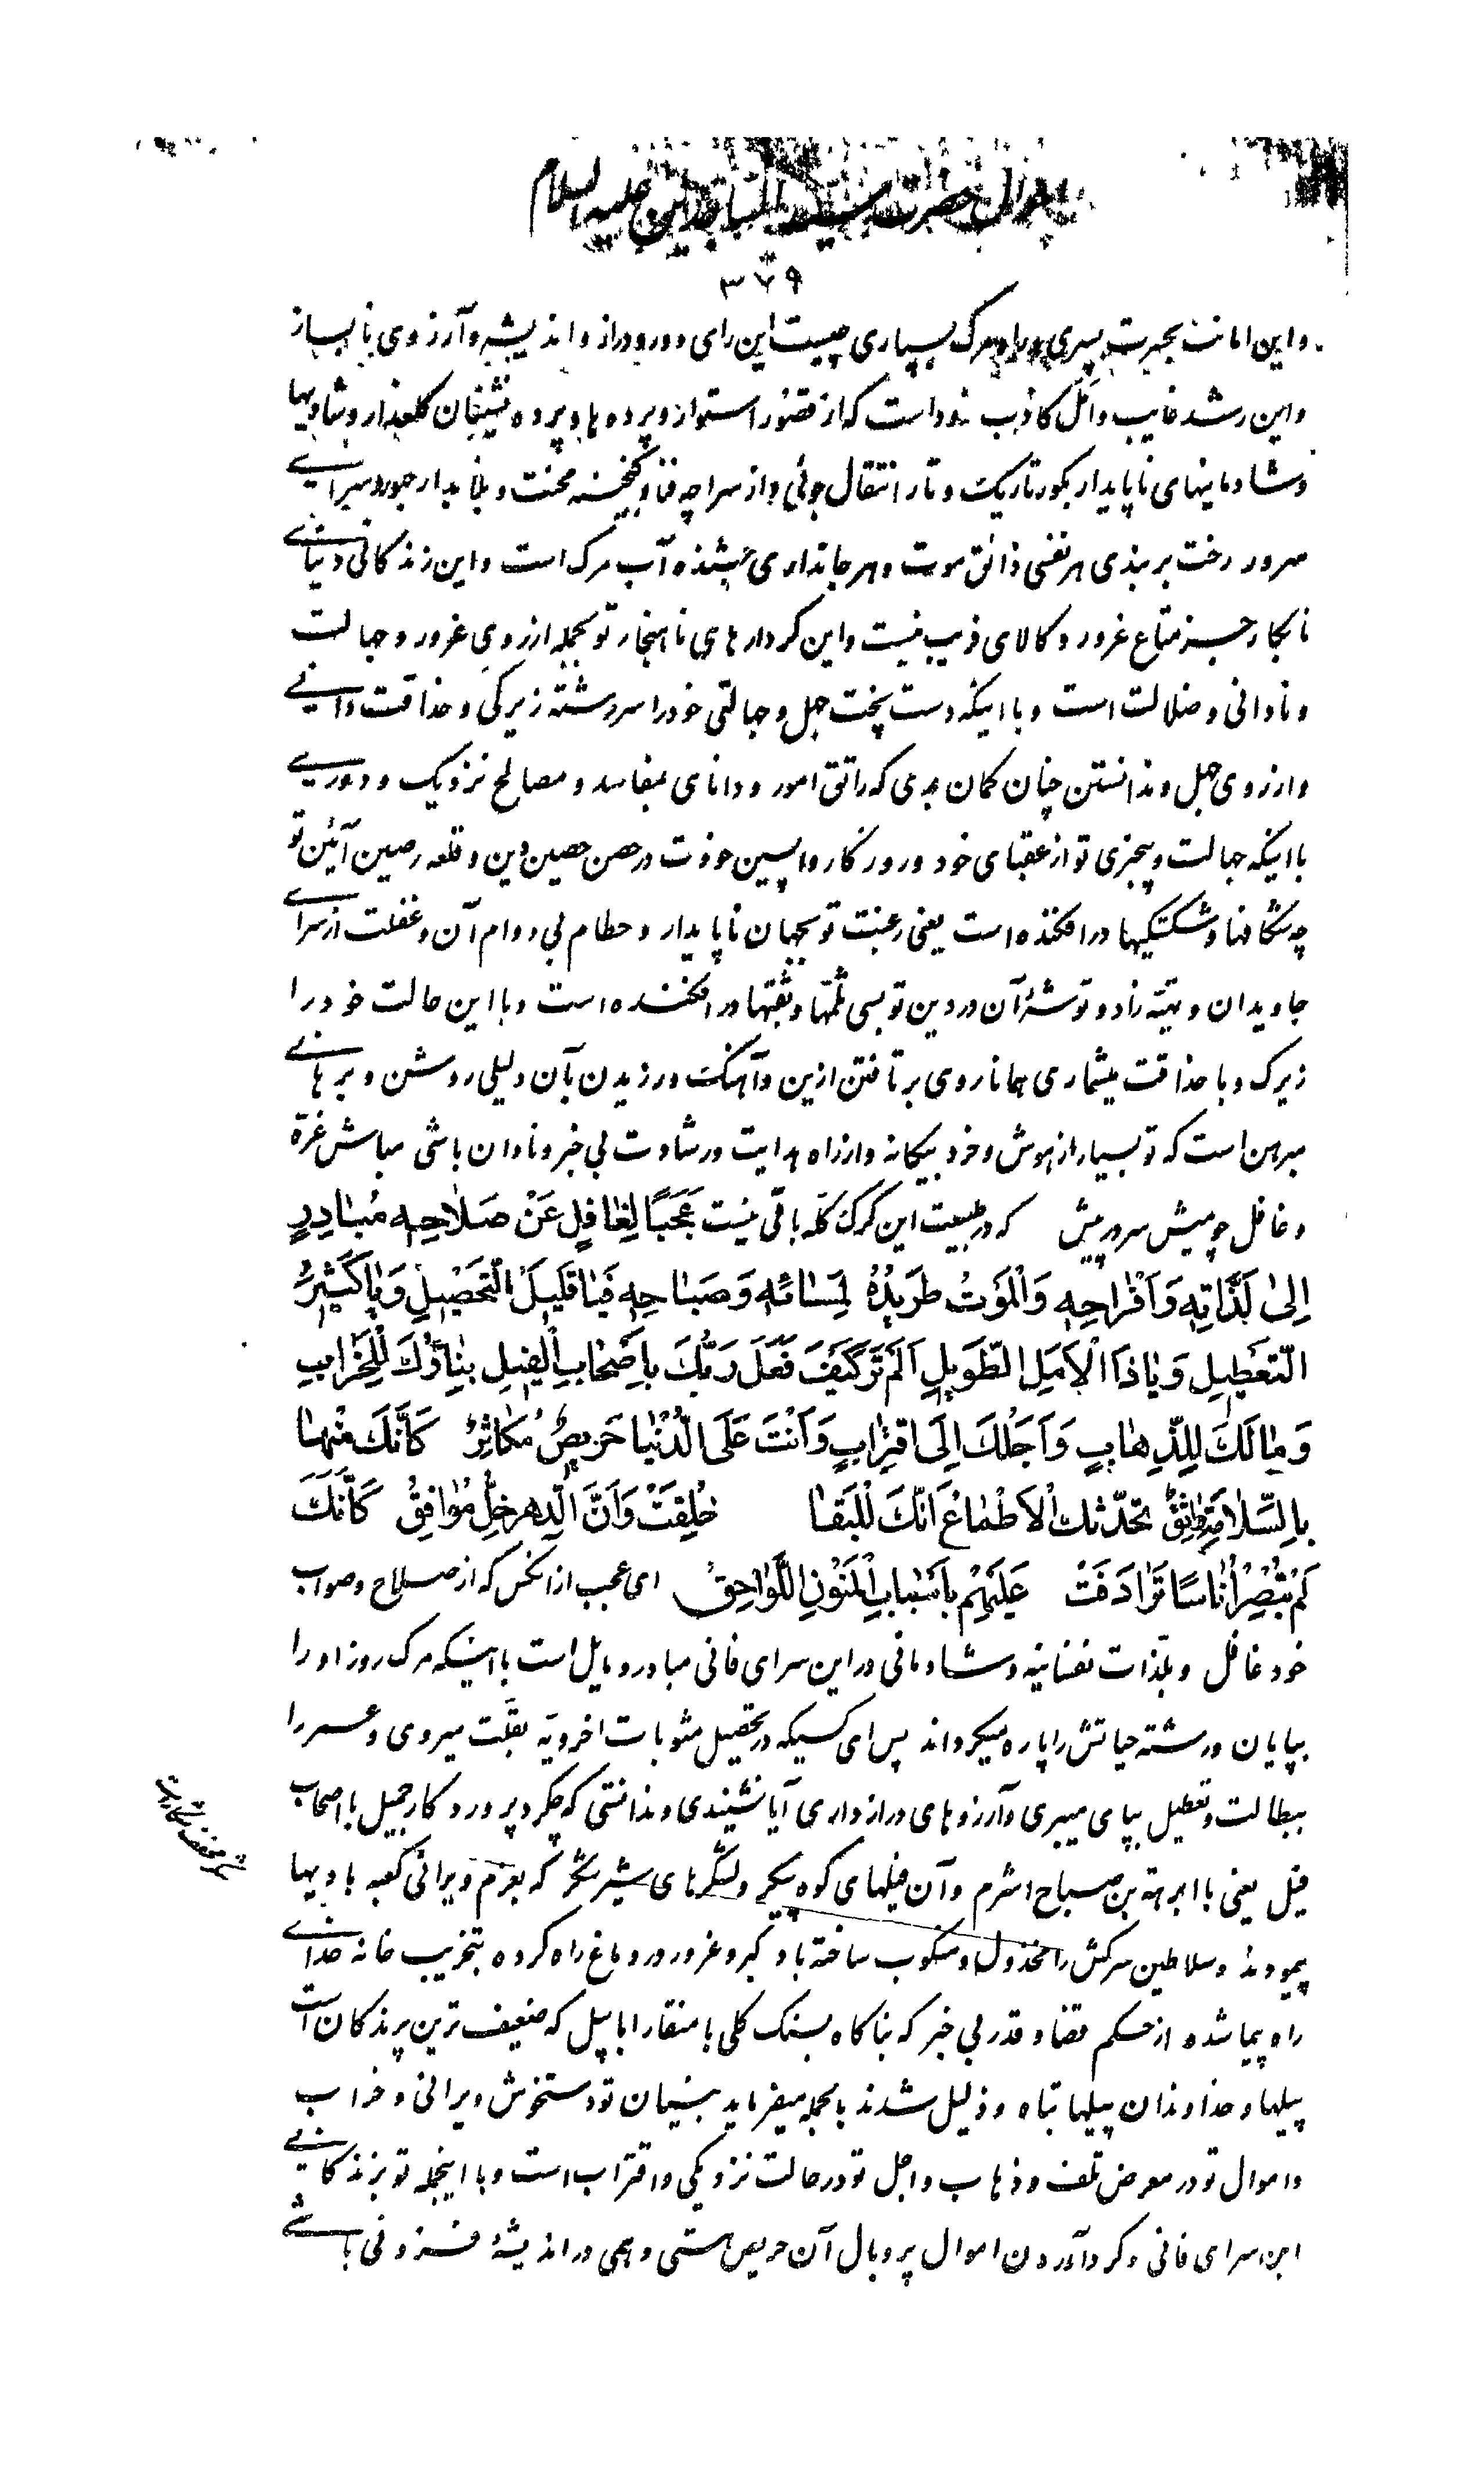 احوال حضرت سید الساجدین علیه السلام
۳۷۹
و این امانت بحیرت بسری و بمرک بسپاری چیست این رای و دور و دراز و اندیشه و آرزوی نابساز
و این رشد غایب و امل کاذب نه زود است که از قصور استوار و پرده ها و پرده نشینان کلعذار و شادیها
و شادمانیهای ناپایدار بکور تاریک و تار انتقال جوئی و از سراچه فنا و کنجینه محنت و بلا بدار حبور و سرای
سرور رخت بربندی هر نفسی ذائق موت و هر جانداری چشنده آب مرک است و این زندکانی دنیای
نابکار جز متاع غرور و کالای فریب نیست و این کردارهای ناهنجار تو بجمله ازروی غرور و جهالت
و نادانی و ضلالت است و با اینکه دست پخت جهل و جهالتی خود را سررشته زیرکی و حذاقت دانی
و ازروی جهل و ندانستن چنان کمان میبری که راتق امور و دانای بمفاسد و مصالح نزدیک و دوری
با اینکه جهالت و بیخبری تو از عقبای خود و روزکار واپسین خودت در حصن حصین دین و قلعه رصین آئین تو
چه شکافها و شکستکیها در افکنده است یعنی رغبت تو بجهان ناپایدار و حطام بی دوام آن و غفلت از سرای
جاویدان و تهیه زاد و توشهٔ آن در دین تو بسی ثلمها و ثقبها در افکنده است و با این حالت خود را
زیرک و با حذاقت میشماری همانا روی برتافتن ازین و آهنک ورزیدن بآن دلیلی روشن و برهانی
مبرهن است که تو بسیار از هوش و خرد بیکانه و از راه هدایت و رشادت بی خبر و نادان باشی مباش غرّة
و غافل چو میش سر در پیش که در طبیعت این کرک کله بانی نیست عَجَبًا لِغافِلٍ عَنْ صَلاحِهِ مُبادِرٍ
اِلیٰ لَذّاتِهِ وَ اَفْراحِهِ وَ الْمَوْتُ طَرِیدُهُ لِمَسائِهِ وَ صَباحِهِ فَیا قَلیلَ التَّحْصیلِ وَ یا کَثیرَ
التَّعْطیلِ وَ یا ذَا الْاَمَلِ الطَّویلِ اَلَمْ تَرَ کَیْفَ فَعَلَ رَبُّكَ بِاَصْحابِ الْفیلِ بِناؤُكَ لِلْخَرابِ
وَ مالَكَ لِلذَّهابِ وَ اَجَلُكَ اِلَی اقْتِرابٍ وَ اَنْتَ عَلَی الدُّنْیا حَریصٌ مُکاثِرٌ کَاَنَّكَ مِنْها
بِالسَّلامَةِ واثِقٌ تُحَدِّثُكَ الْاَطْماعُ اَنَّكَ لِلْبَقا خُلِقْتَ وَ اَنَّ الدَّهْرَ خِلٌّ مُوافِقٌ کَاَنَّكَ
لَمْ تُبْصِرْ اُناسًا تَرادَفَتْ عَلَیْهِمْ بِاَسْبابِ الْمَنُونِ اللَّواحِقُ ای عجب از انکس که از صلاح و صواب
خود غافل و بلذات نفسانیه و شادمانی در این سرای فانی مبادر و مایل است با اینکه مرک روز او را
بپایان و رشته حیاتش را پاره میکرداند پس ای کسیکه در تحصیل مثوبات اخرویّه بقلّت میروی و عمر را
ببطالت و تعطیل بپای میبری و آرزوهای دراز داری آیا نشنیدی و ندانستی که چکرد پرورد کار جمیل با اصحاب
فیل یعنی با ابرهة بن صباح اشرم و آن فیلهای کوه پیکر و لشکرهای شیر شکر که بعزم ویرانی کعبه بادیها
پیمودند و سلاطین سرکش را مخذول و منکوب ساخته باد کبر و غرور در دماغ راه کرده بتخریب خانه خدای
راه پیما شده از حکم قضا و قدر بی خبر که بناکاه بسنک کلی با منقار ابابیل که ضعیف ترین پرندکان است
پیلها و خداوندان پیلها تباه و ذلیل شدند بالجمله میفرماید بنیان تو دستخوش ویرانی و خراب
و اموال تو در معرض تلف و ذهاب و اجل تو در حالت نزدیکی و اقتراب است و با اینجمله تو بزندکانی
این سرای فانی و کرد آوردن اموال پر وبال آن حریص هستی و همی در اندیشهٔ فزونی باشی